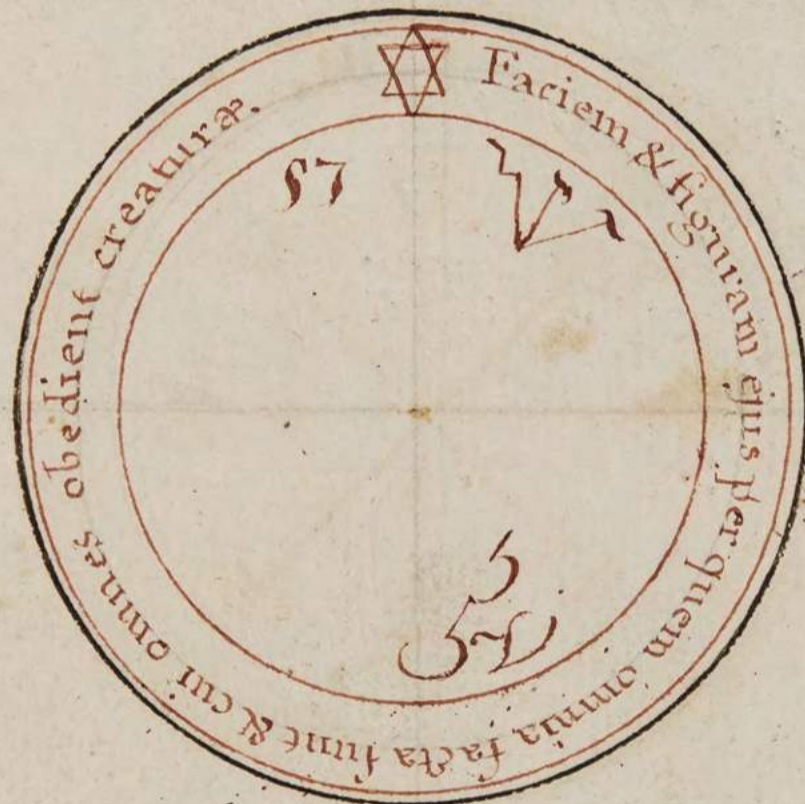 Faciem & figuram ejus per quem omnia facta sunt & cui omnes obedient creaturæ.